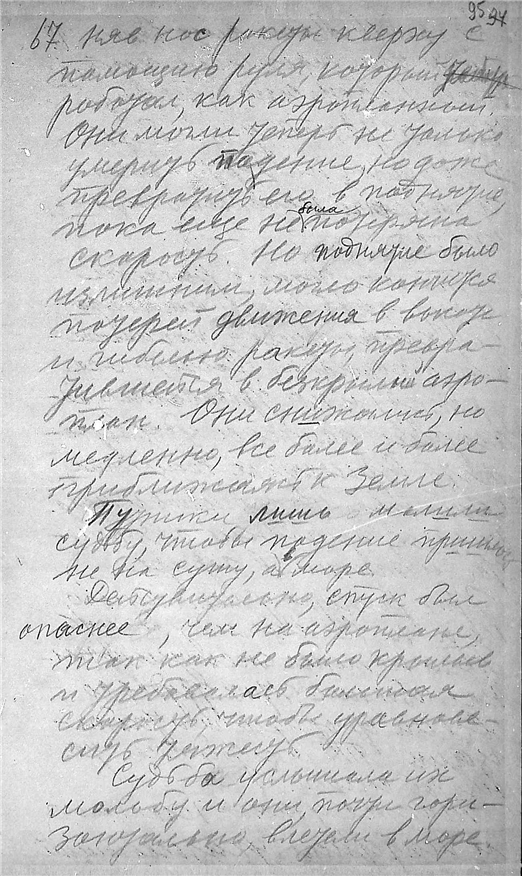 95 97
67 няв нос ракеты кверху с
помощию руля, который
работал, как аэропланный.
Они могли теперь не только
умерить падение, но даже
превратить его в поднятие,
пока еще не была потеряна
скорость. Но поднятие было
излишним, могло кончится
потерей движения в высоте
и гибелью ракеты, превра-
тившейся в бескрылый аэро-
план. Они снижались, но
медленно, все более и более
приближаясь к Земле.
лишь молили
судьбу, чтобы падение пришлось
не на сушу, а в море.
Действительно, спуск был
опаснее, чем на аэроплане,
так как не было крыльев
и требовалась большая
скорость, чтобы уравнове-
сить тяжесть.
Судьба услышала их
мольбу и они, почти гори-
зонтально, влетели в море.